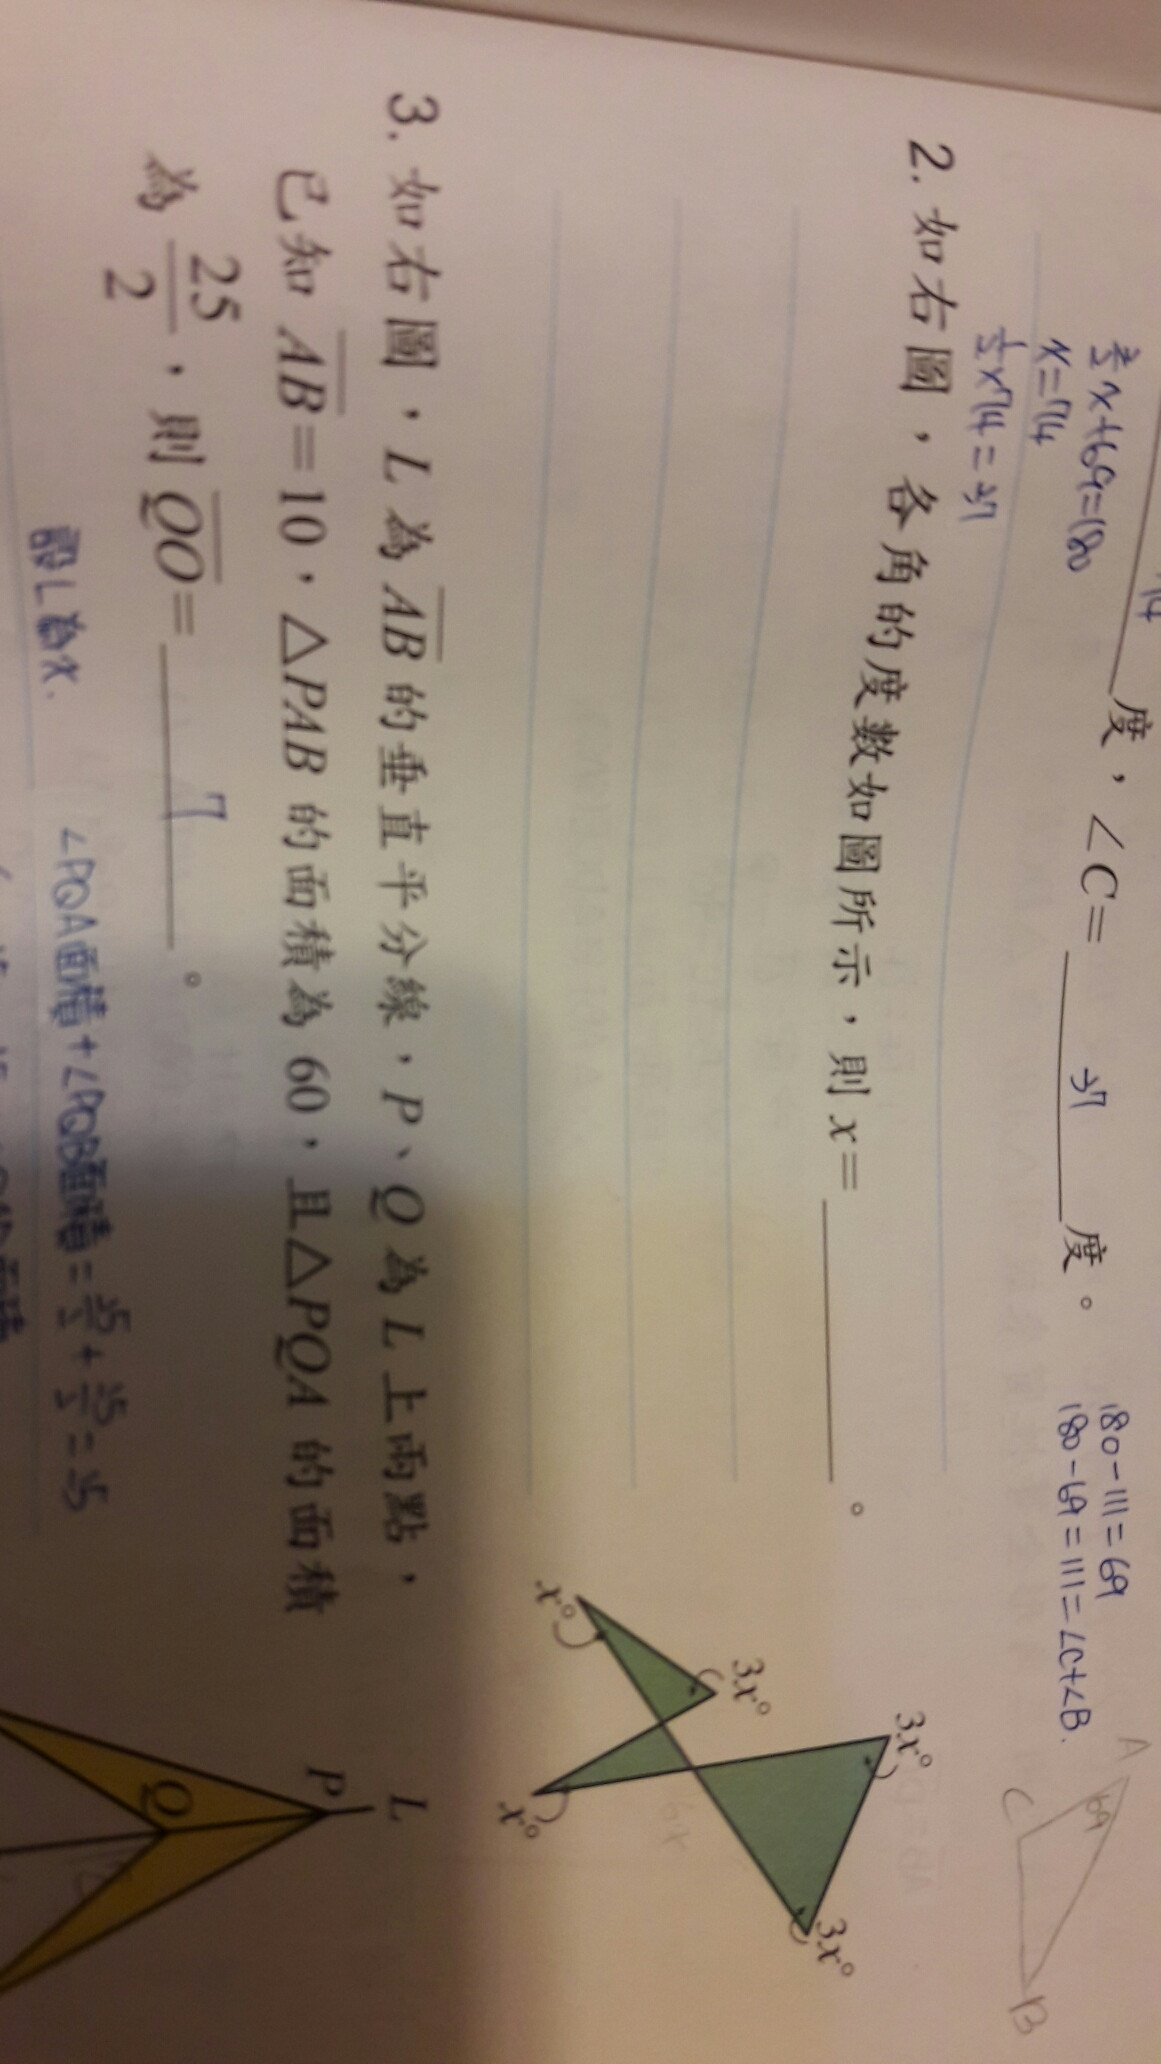 74
度，∠C= 37 度。
3/2 x+69=180
x=74
1/2×74=37
180-111=69
180-69=111=∠C+∠B.
A
69
C
B
2. 如右圖，各角的度數如圖所示，則 x= 。
3x°
3x°
3x°
x°
x°
3. 如右圖，L 為 AB 的垂直平分線，P、Q 為 L 上兩點，
已知 AB=10，△PAB 的面積為 60，且△PQA 的面積
為 25/2，則 QO= 7 。
L
P
Q
設L為x.
∠PQA面積+∠PQB面積=25/2+25/2=25